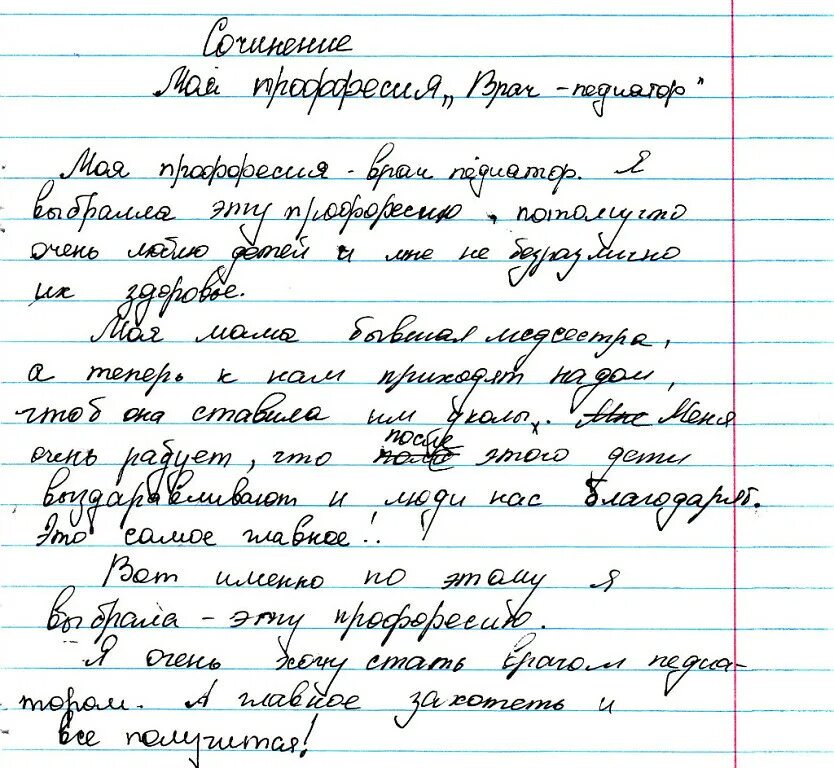 Сочинение
Моя профформесия „ Врач - педиатор"
Моя профформесия - врач педиатор. Я
выбралла эту профформесию, потомучто
очень люблю детей и мне не безразлично
их здоровье.
Моя мама бывшая медсестра,
а теперь к нам приходят на дом,
чтоб она ставила им уколы. Мне Меня
очень радует, что после этого дети
выздаравливают и люди нас благодарят.
Это самое главное!!
Вот именно по этому я
выбрала - эту профформесию.
Я очень хочу стать врачом педиа-
тором. А главное захотеть и
все получитая!